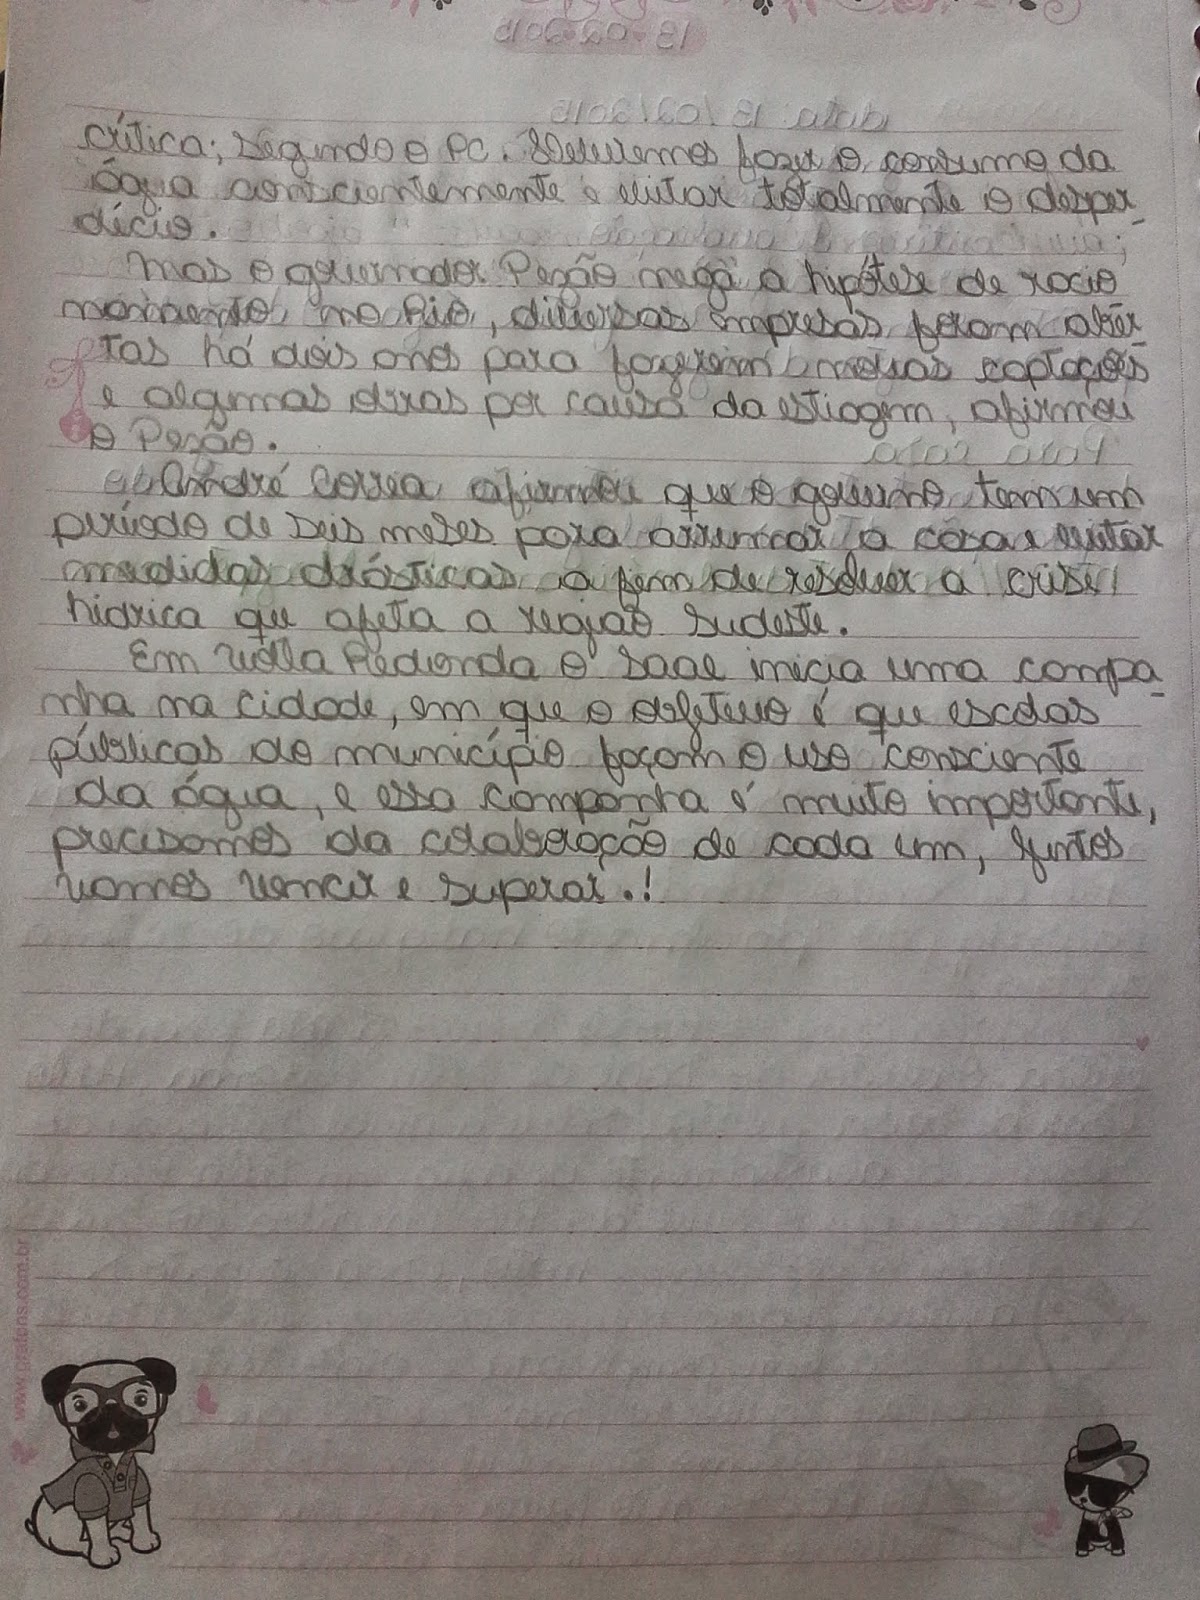 crítica; Segundo o PC. Devemos fazer o consumo da
água conscientemente e evitar totalmente o desper-
dício.
Mas o governador Pezão nega a hipótese de racio
namento no Rio, diversas empresas foram aber
tas há dois anos para fazerem novas captações
e algumas obras por causa da estiagem, afirmou
o Pezão.
André Correa afirmou que o governo tem um
período de seis meses para arrumar a casa e evitar
medidas drásticas a fim de resolver a crise
hídrica que afeta a região Sudeste.
Em Volta Redonda o Saae inicia uma campa-
nha na cidade, em que o objetivo é que escolas
públicas do município façam o uso consciente
da água, e essa campanha é muito importante,
precisamos da colaboração de cada um, juntos
vamos vencer e superar.!
www.grafons.com.br